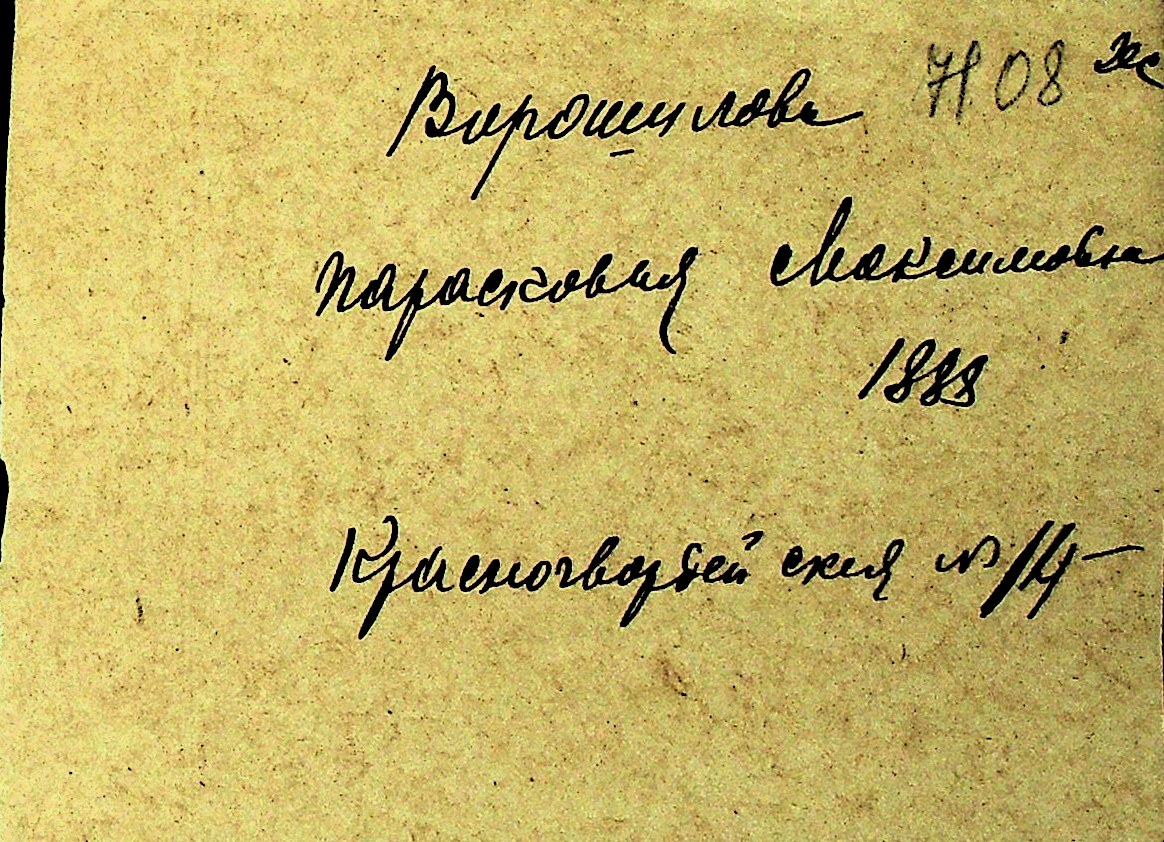 Ворошилова 7108 ж
Парасковия Максимовна
1888
Красногвардейская № 14